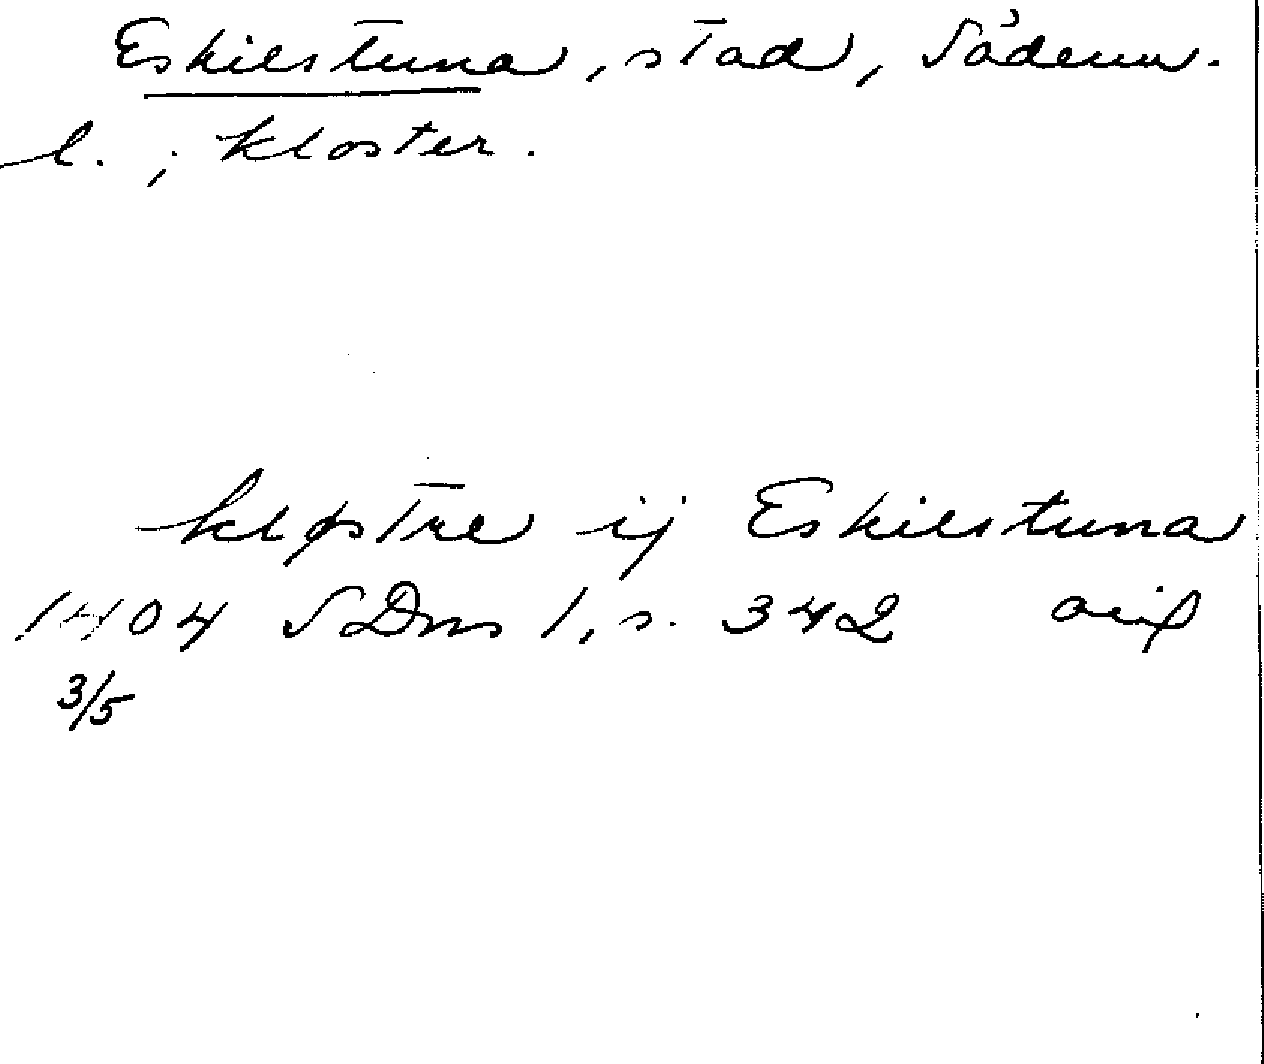 Eskilstuna, stad, Söderm.
l. ; kloster.
kløstre ij Eskilstuna
1404 SDns 1, s. 342 avsk
3/5